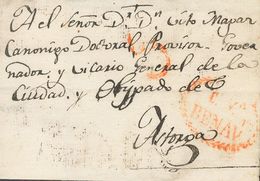 Al Señor Dr. Dn. Vito Mapar
Canonigo Doctoral Provisor Gover
nador, y Vicario General de la
Ciudad, y Obispado de
Astorga
BENAV